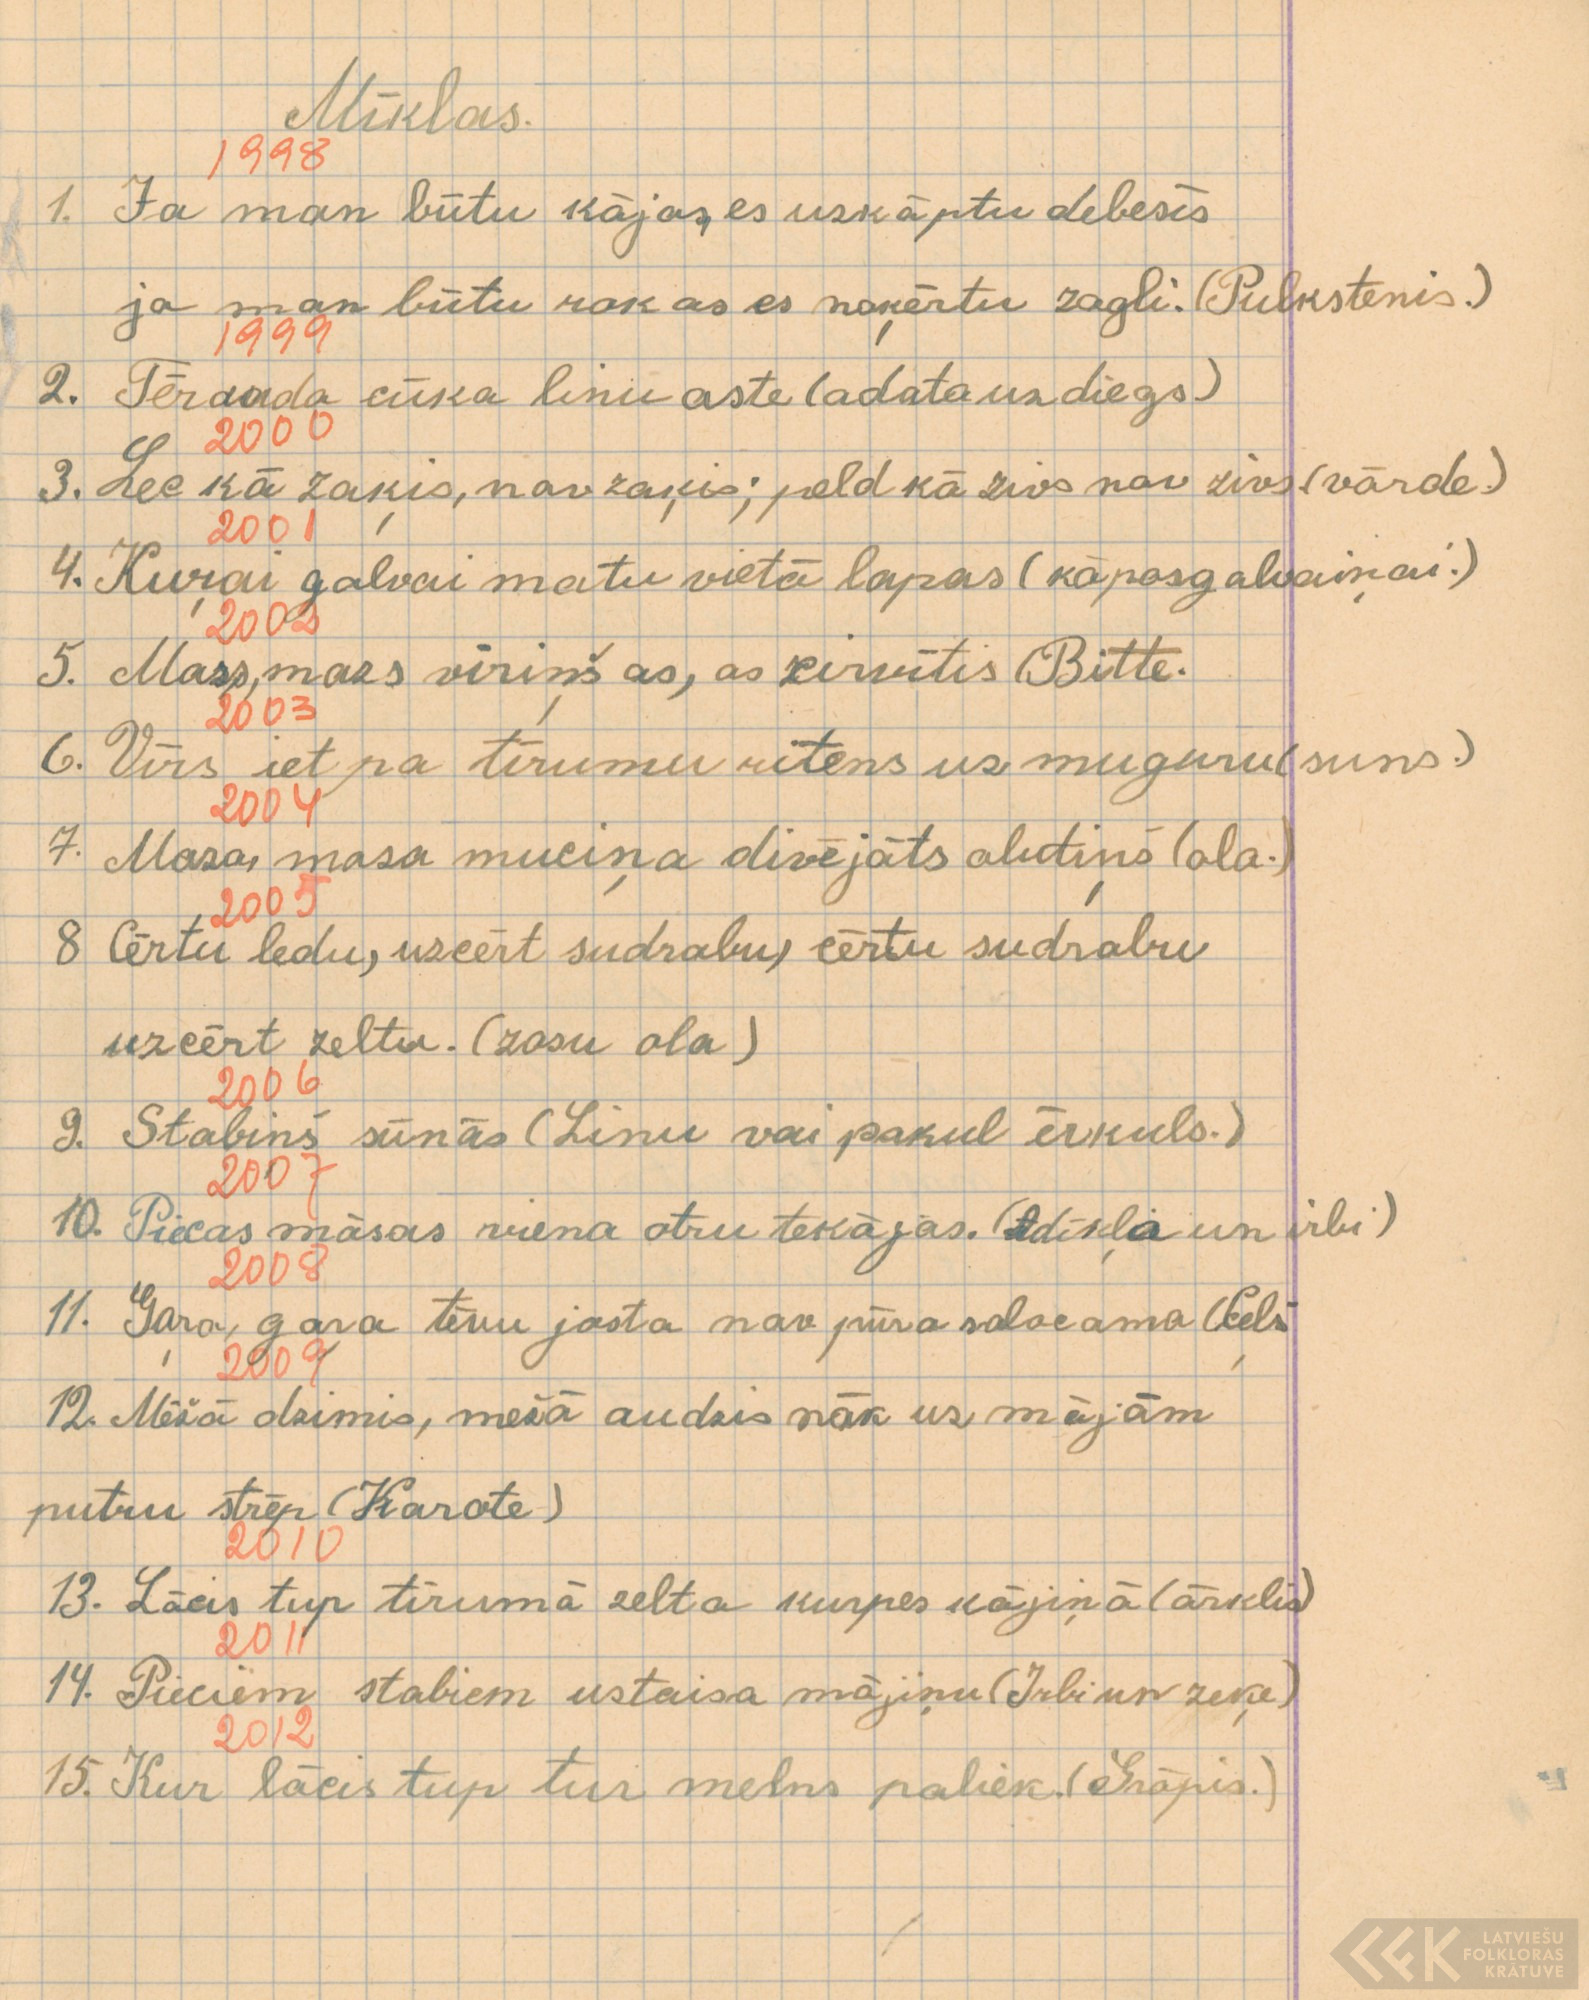 Mīklas.
1998
1. Ja man būtu kājas, es uzkāptu debesīs
ja man būtu rokas es noķērtu zagli. (Pulkstenis.)
1999
2. Tērauda cūka linu aste (adata uz diegs)
2000
3. Lec kā zaķis, nav zaķis; peld kā zivs nav zivs (vārde.)
2001
4. Kuŗai galvai matu vietā lapas (kāposgalvaiņai.)
2002
5. Mazs, mazs vīriņš as, as cirvītis (Bitte.
2003
6. Vīrs iet pa tīrumu ritens uz muguru (suns.)
2004
7. Maza, maza muciņa divējāts alutiņš (ola.)
2005
8 Cērtu ledu, uzcērt sudrabu, cērtu sudrabu
uzcērt zeltu. (zosu ola)
2006
9. Stabiņš sūnās (Linu vai pakul ērkuls.)
2007
10. Piecas māsas viena otru tekājās. (adīkļa un irbi)
2008
11. Gaŗa, gaŗa tēvu josta nav pūra salocama (Ceļš
2009
12. Mēžā dzimis, mežā audzis nāk uz mājām
putru strēp (Karote)
2010
13. Lācis tup tīrumā zelta kurpes kājiņā (ārklis)
2011
14. Pieciem stabiem ustaisa mājiņu (Irbi un zeķe)
2012
15. Kur lācis tup tur melns paliek. (Grāpis.)
LATVIEŠU
FOLKLORAS
KRĀTUVE